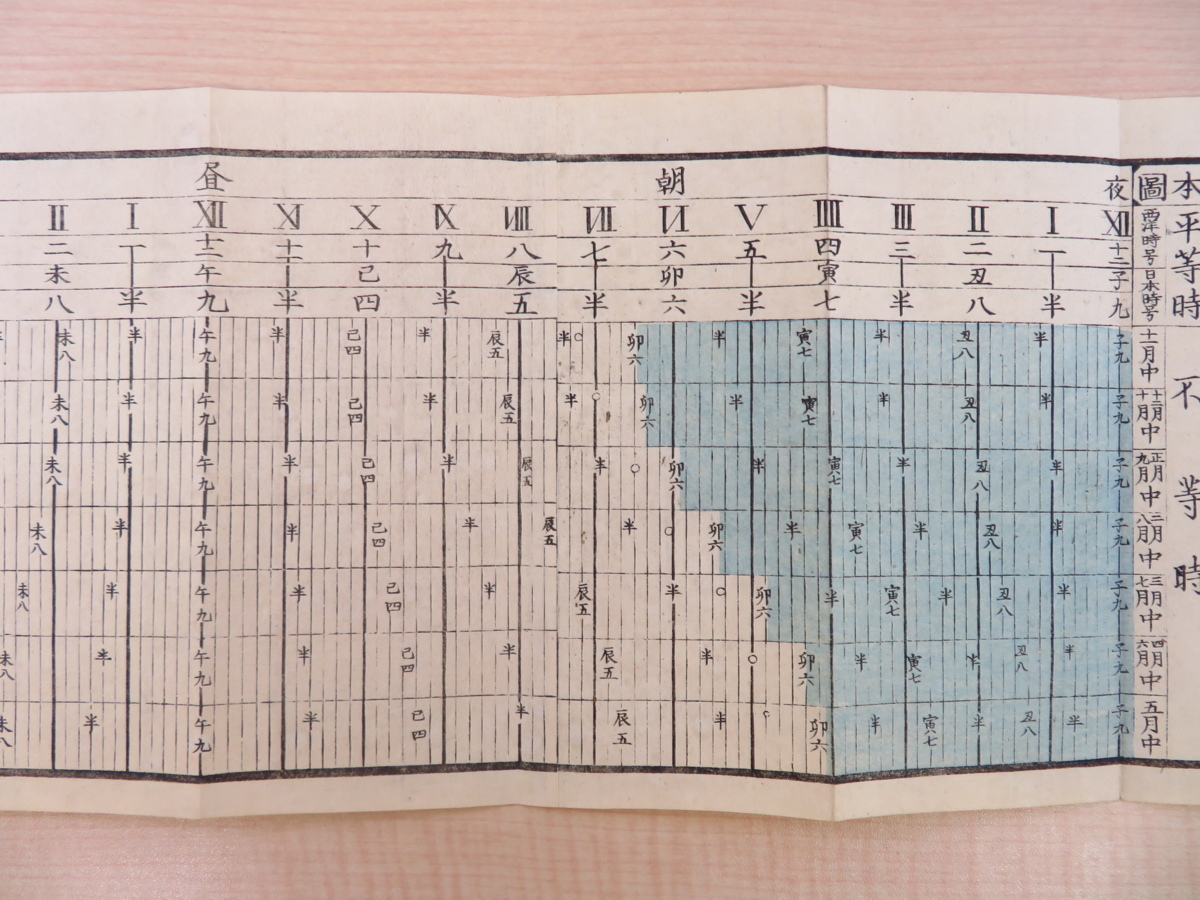 本平等時
不等時
圖
夜 朝 昼
西洋時号 Ⅻ Ⅰ Ⅱ Ⅲ ⅡⅡ Ⅴ Ⅵ Ⅶ Ⅷ Ⅸ Ⅹ Ⅺ Ⅻ Ⅰ Ⅱ
十二 一 二 三 四 五 六 七 八 九 十 十一 十二 一 二
日本時号 子 丑 寅 卯 辰 巳 午 未
九 半 八 半 七 半 六 半 五 半 四 半 九 半 八
十一月中 子九 半 丑八 半 寅七 半 卯六 半 辰五 半 己四 半 午九 半 未八
十二月 十月 中 子九 半 丑八 半 寅七 半 卯六 半 辰五 半 己四 半 午九 半 未八
正月 九月 中 子九 半 丑八 半 寅七 半 卯六 半 辰五 半 己四 半 午九 半 未八
二月 八月 中 子九 半 丑八 半 寅七 半 卯六 半 辰五 半 己四 半 午九 半 未八
三月 七月 中 子九 半 丑八 半 寅七 半 卯六 半 辰五 半 己四 半 午九 半 未八
四月 六月 中 子九 半 丑八 半 寅七 半 卯六 半 辰五 半 己四 半 午九 半 未八
五月中 子九 半 丑八 半 寅七 半 卯六 半 辰五 半 己四 半 午九 半 未八